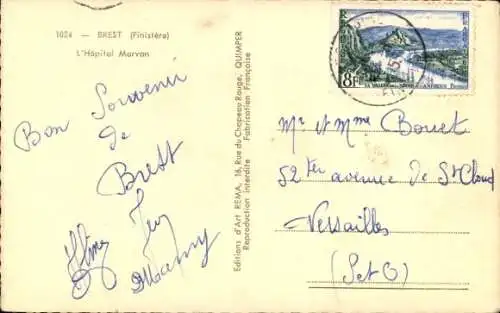 1024 — BREST (Finistère)
L'Hôpital Morvan
Bon Souvenir
de
Brest
Editions d'Art REMA, 16, Rue du Chapeau Rouge, QUIMPER
Reproduction interdite Fabrication Française
8F
Mr et Mme Bouet
52ter avenue de St Cloud
Versailles
(S et O)